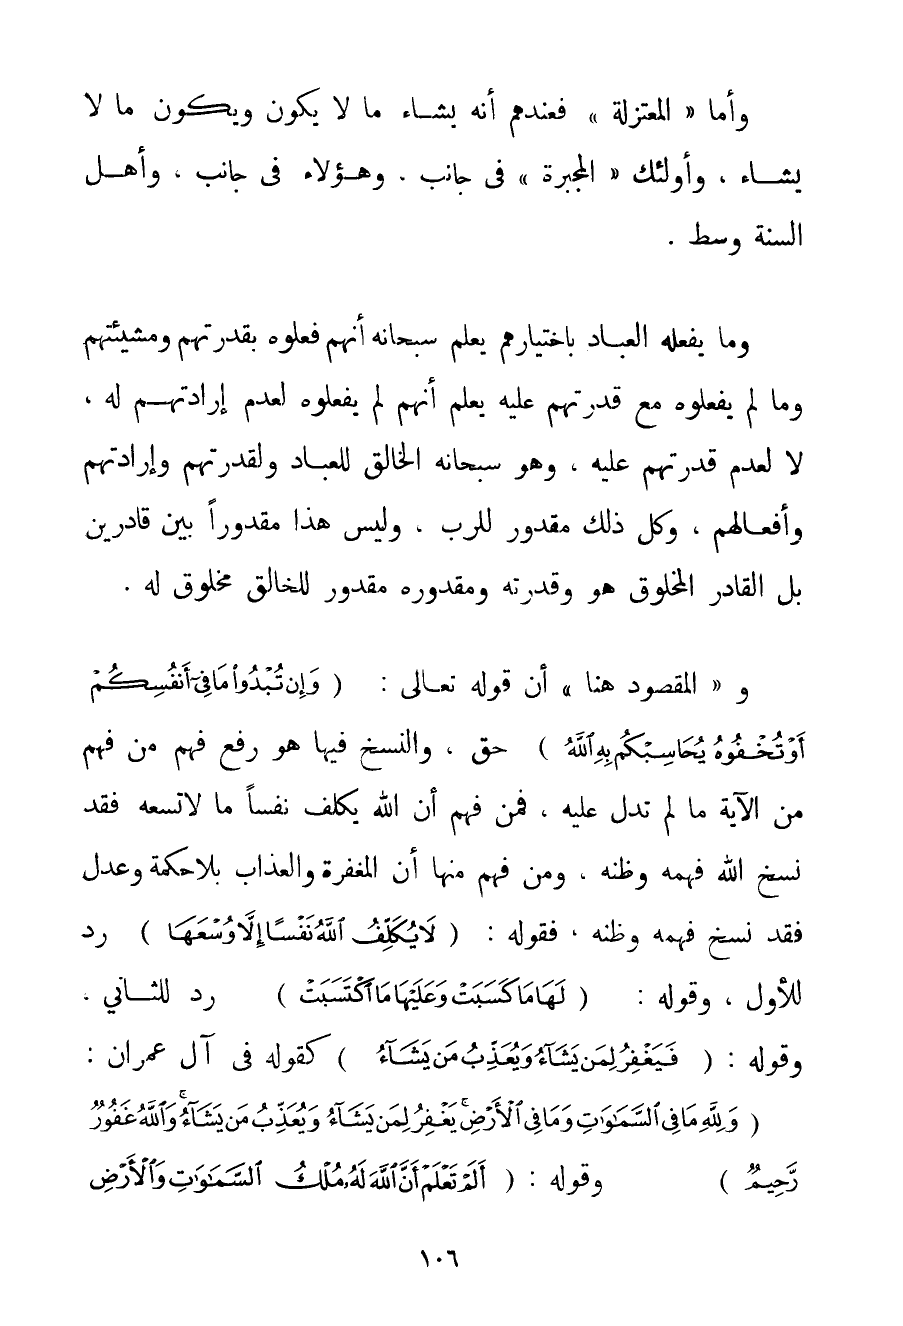 وأما « المعتزلة » فعندهم أنه يشاء ما لا يكون ويكون ما لا
يشاء ، وأولئك « المجبرة » فى جانب . وهؤلاء فى جانب ، وأهل
السنة وسط .
وما يفعله العباد باختيارهم يعلم سبحانه أنهم فعلوه بقدرتهم ومشيئتهم
وما لم يفعلوه مع قدرتهم عليه يعلم أنهم لم يفعلوه لعدم إرادتهم له ،
لا لعدم قدرتهم عليه ، وهو سبحانه الخالق للعباد ولقدرتهم وإرادتهم
وأفعالهم ، وكل ذلك مقدور للرب . وليس هذا مقدوراً بين قادرين
بل القادر المخلوق هو وقدرته ومقدوره مقدور للخالق مخلوق له .
و « المقصود هنا » أن قوله تعالى : ( وَإِن تُبْدُوا۟ مَا فِىٓ أَنفُسِكُمْ
أَوْ تُخْفُوهُ يُحَاسِبْكُم بِهِ ٱللَّهُ ) حق ، والنسخ فيها هو رفع فهم من فهم
من الآية ما لم تدل عليه ، فمن فهم أن الله يكلف نفساً ما لاتسعه فقد
نسخ الله فهمه وظنه ، ومن فهم منها أن المغفرة والعذاب بلاحكمة وعدل
فقد نسخ فهمه وظنه ، فقوله : ( لَا يُكَلِّفُ ٱللَّهُ نَفْسًا إِلَّا وُسْعَهَا ) رد
للأول ، وقوله : ( لَهَا مَا كَسَبَتْ وَعَلَيْهَا مَا ٱكْتَسَبَتْ ) رد للثاني .
وقوله : ( فَيَغْفِرُ لِمَن يَشَآءُ وَيُعَذِّبُ مَن يَشَآءُ ) كقوله فى آل عمران :
( وَلِلَّهِ مَا فِى ٱلسَّمَٰوَٰتِ وَمَا فِى ٱلْأَرْضِ ۚ يَغْفِرُ لِمَن يَشَآءُ وَيُعَذِّبُ مَن يَشَآءُ ۚ وَٱللَّهُ غَفُورٌ
رَّحِيمٌ ) وقوله : ( أَلَمْ تَعْلَمْ أَنَّ ٱللَّهَ لَهُۥ مُلْكُ ٱلسَّمَٰوَٰتِ وَٱلْأَرْضِ
١٠٦